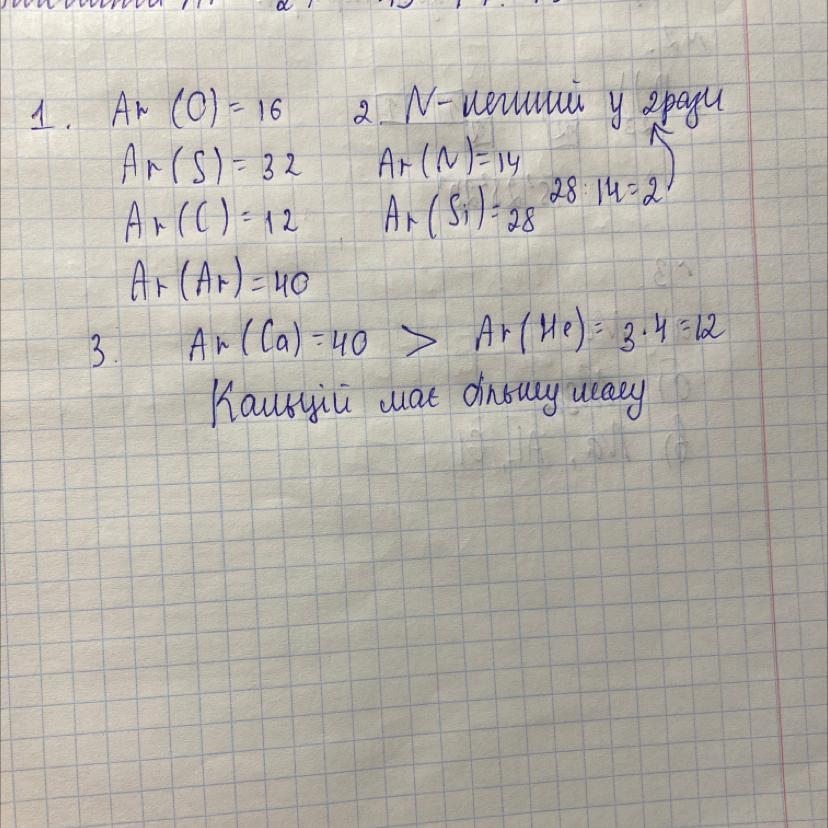 1. Ar (O) = 16
Ar (S) = 32
Ar (C) = 12
Ar (Ar) = 40
2. N - легший у 2 рази
Ar (N) = 14
Ar (Si) = 28 28 : 14 = 2
3. Ar (Ca) = 40 > Ar (He) = 3 · 4 = 12
Кальцій має більшу масу